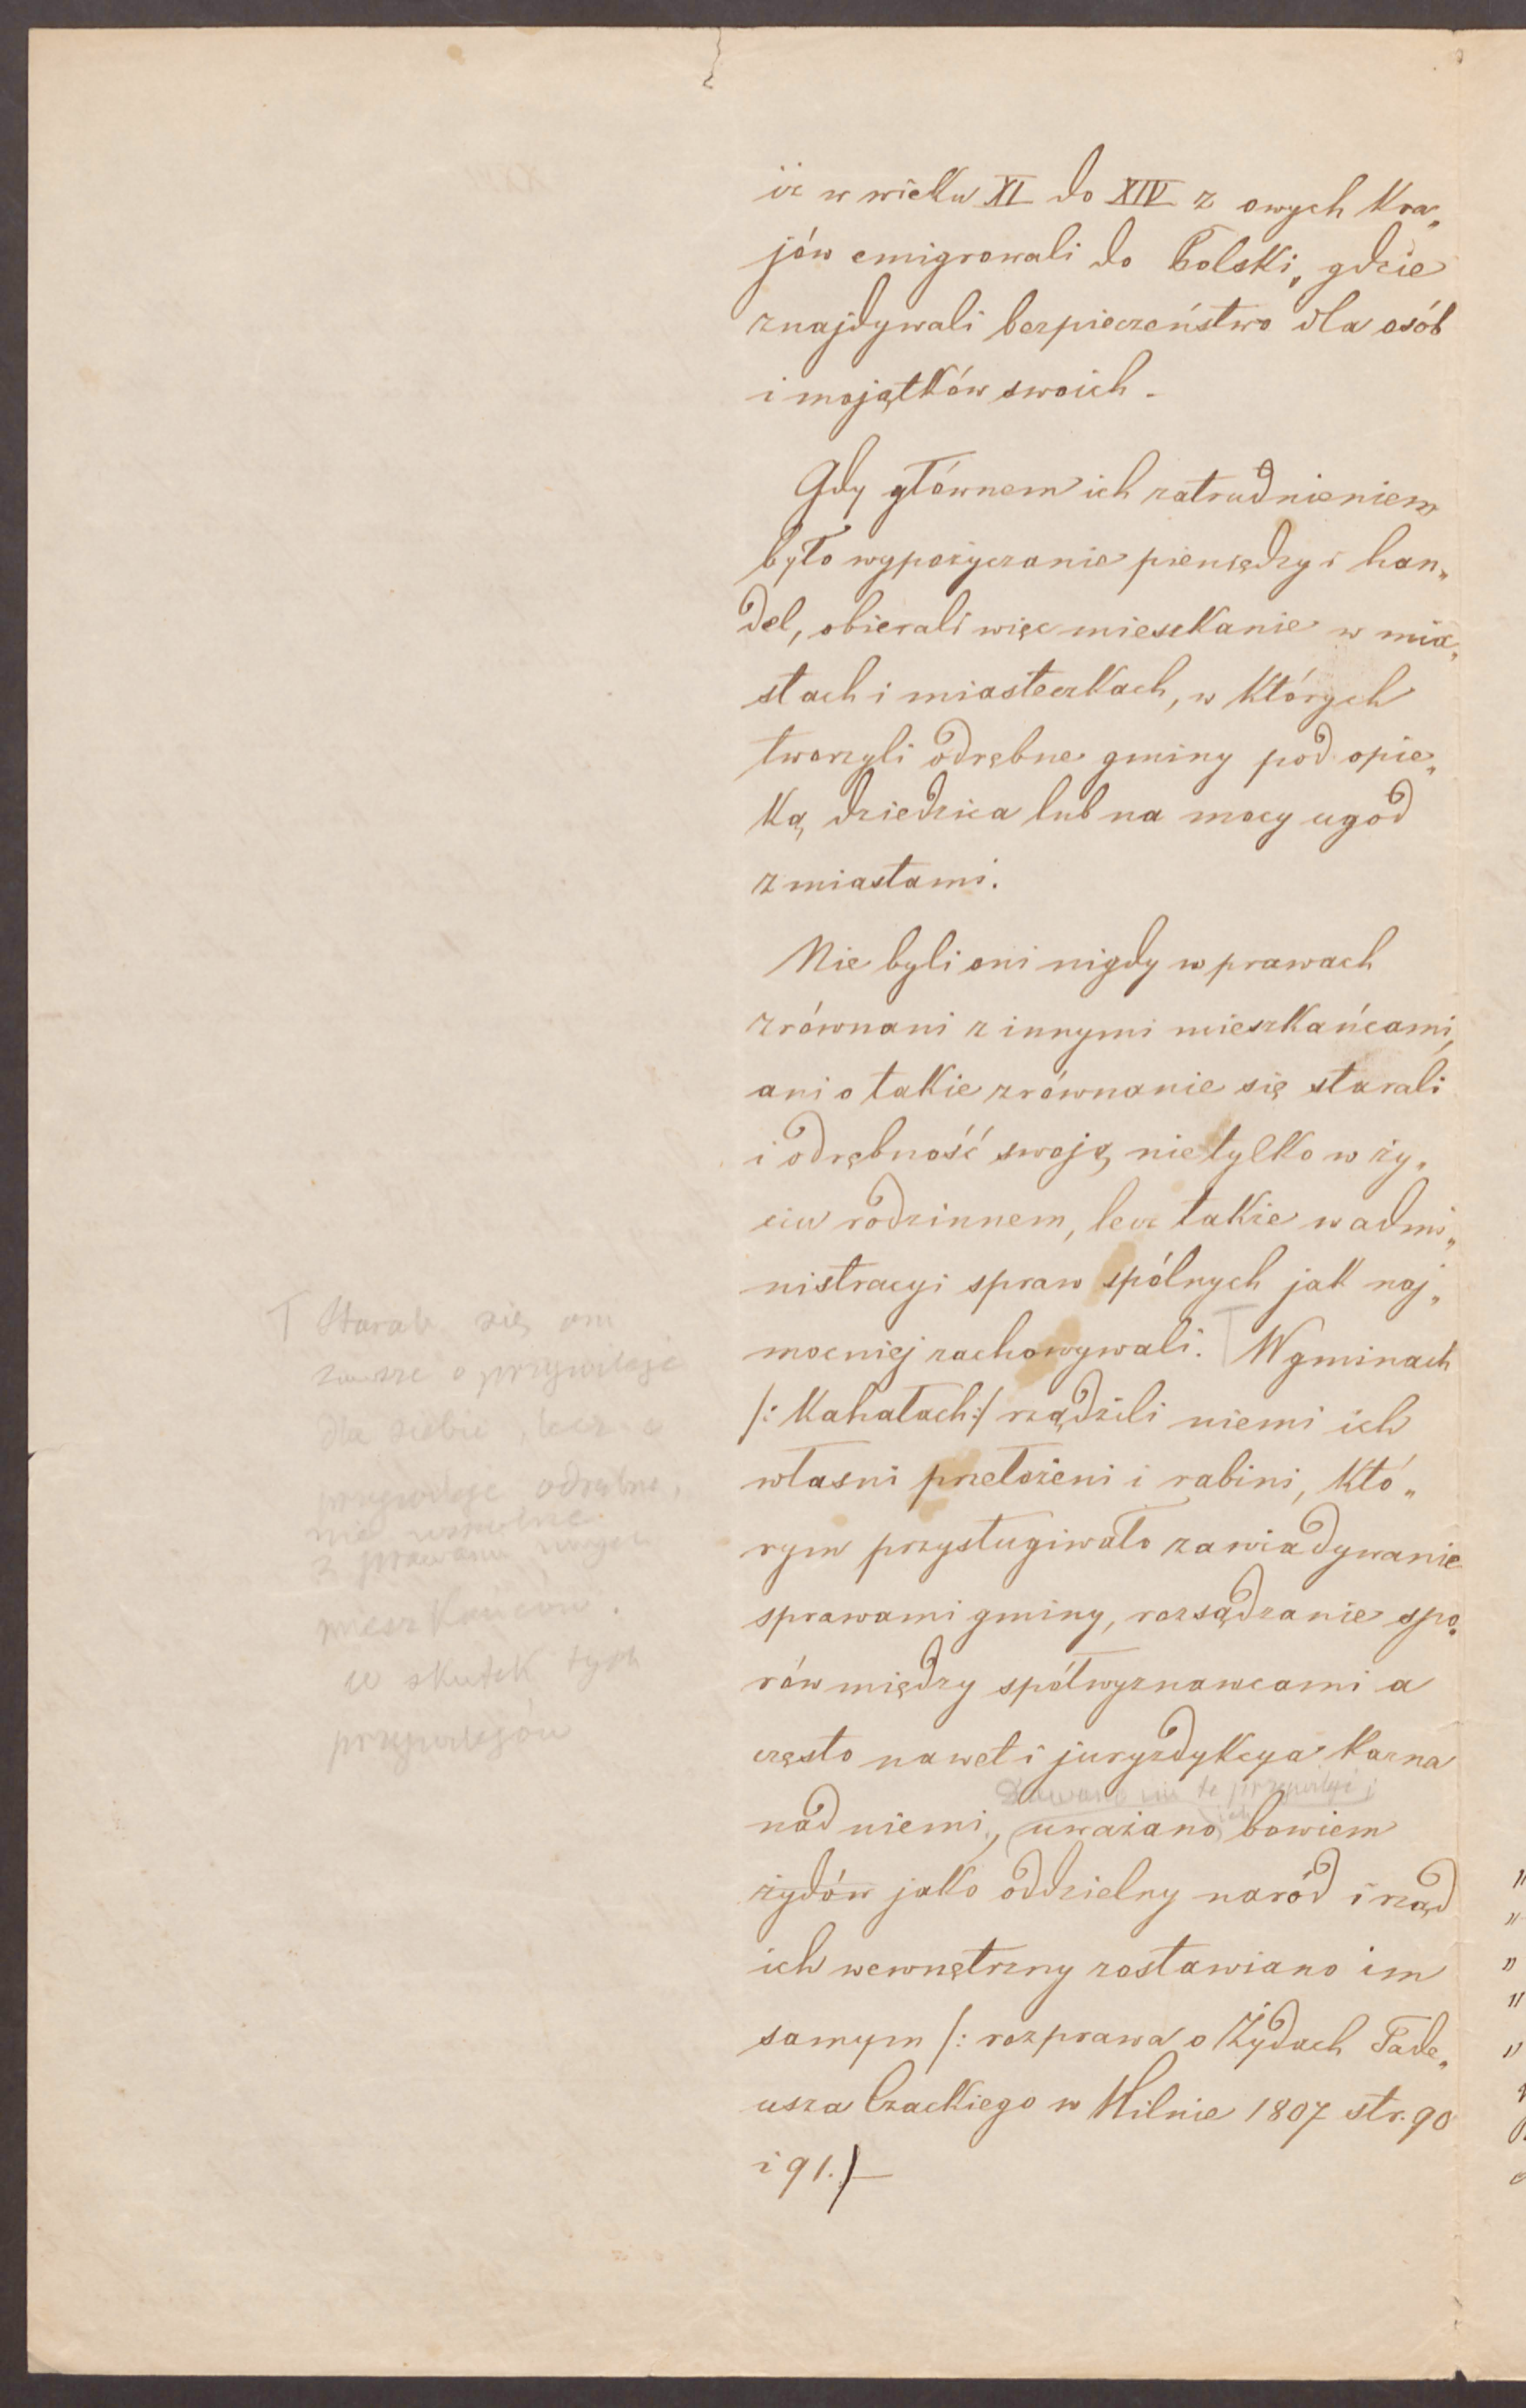 iż w wieku XI do XIV z owych kra„
jów emigrowali do Polski, gdzie
znajdywali bezpieczeństwo dla osób
i majątków swoich.
Gdy głównem ich zatrudnieniem
było wypożyczanie pieniędzy i han„
del, obierali więc mieszkanie w mia„
stach i miasteczkach, w których
tworzyli odrębne gminy pod opie„
ką dziedzica lub na mocy ugód
z miastami.
Nie byli oni nigdy w prawach
zrównani z innymi mieszkańcami,
ani o takie zrównanie się starali
i odrębność swoją nietylko w ży„
ciu rodzinnem, lecz także w admi„
nistracyi spraw spólnych jak naj„
mocniej zachowywali. T W gminach
/: Kahałach :/ rządzili niemi ich
własni przełożeni i rabini, któ„
rym przysługiwało zawiadywanie
sprawami gminy, rozsądzanie spo„
rów między spółwyznawcami a
często nawet i juryzdykcya karna
Dawano im te przywileje;
nad niemi, uważano ich bowiem
żydów jako oddzielny naród i rząd
ich wewnętrzny zostawiano im
samym /: rozprawa o Żydach Tade„
usza Czackiego w Wilnie 1807 str. 90
i 91. /
T Starali się oni
zawsze o przywileje
dla siebie, lecz o
przywileje odrębne,
nie
z prawami innych
mieszkańców.
W skutek tych
przywilejów